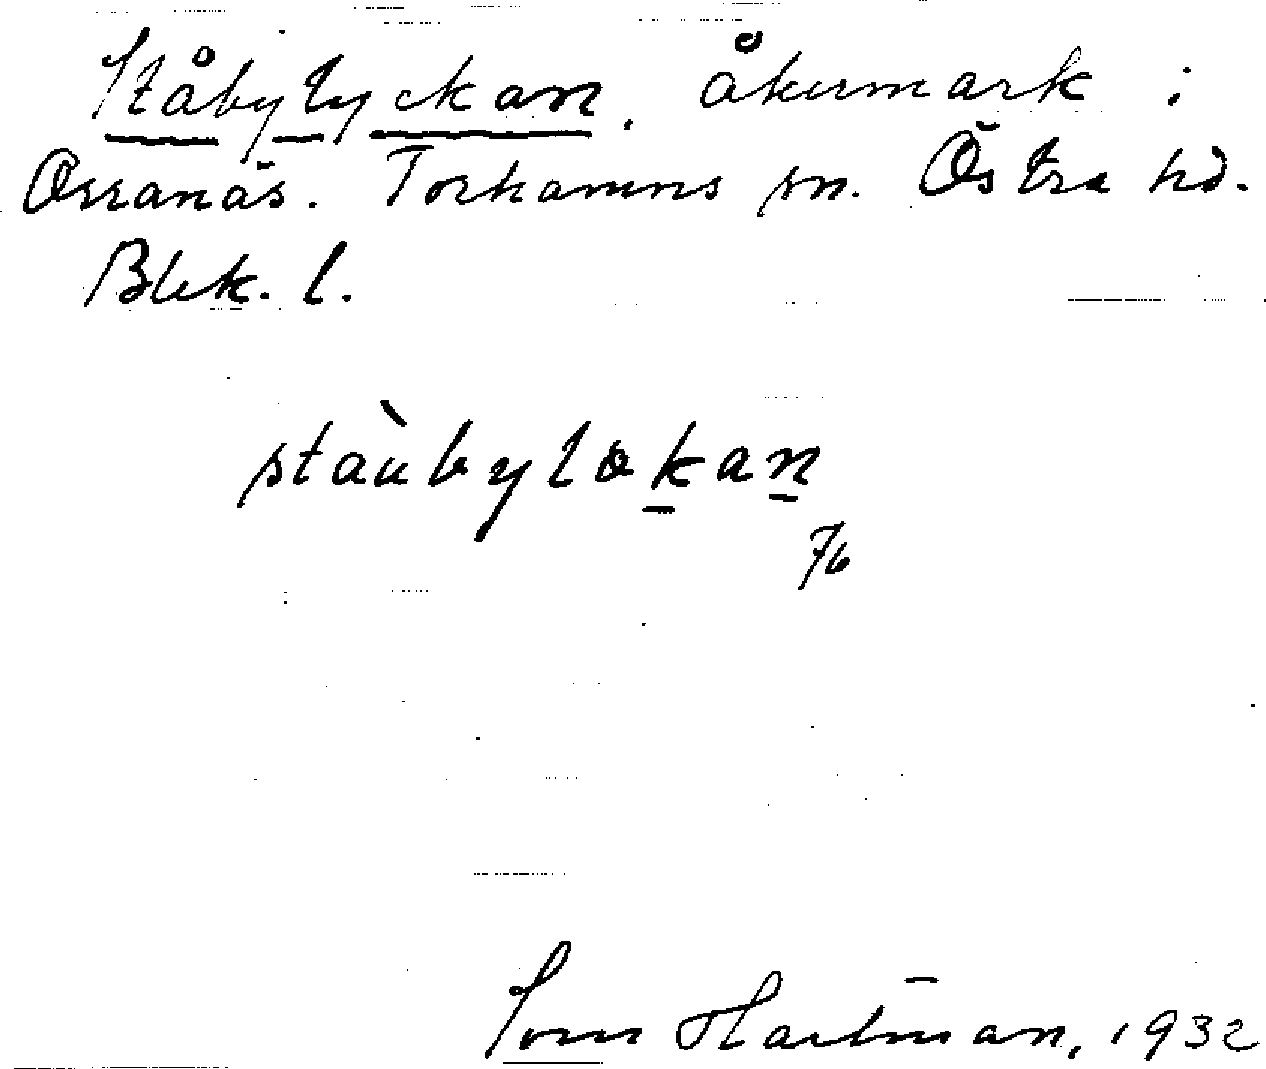 Ståbylyckan. åkermark i
Orranäs. Torhamns sn. Östra hd.
Blek. l.
staùbylokan
76
Hartman, 1932